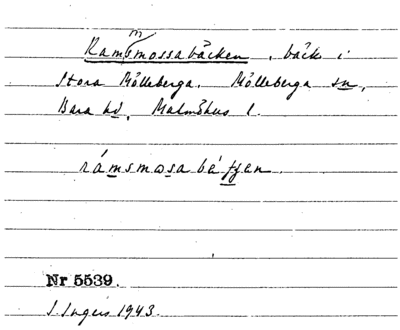 m
Ramsmossabäcken, bäck i
Stora Mölleberga. Mölleberga sn,
Bara hd, Malmöhus l.
rámsmosabétjen.
Nr 5539.
S. Ingers 1943.